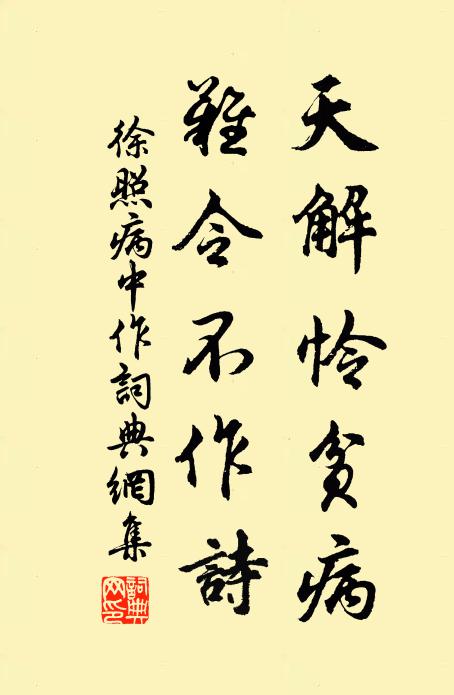 天解怜貧病
難令不作詩
徐照病中作詞典網集
詞典網印